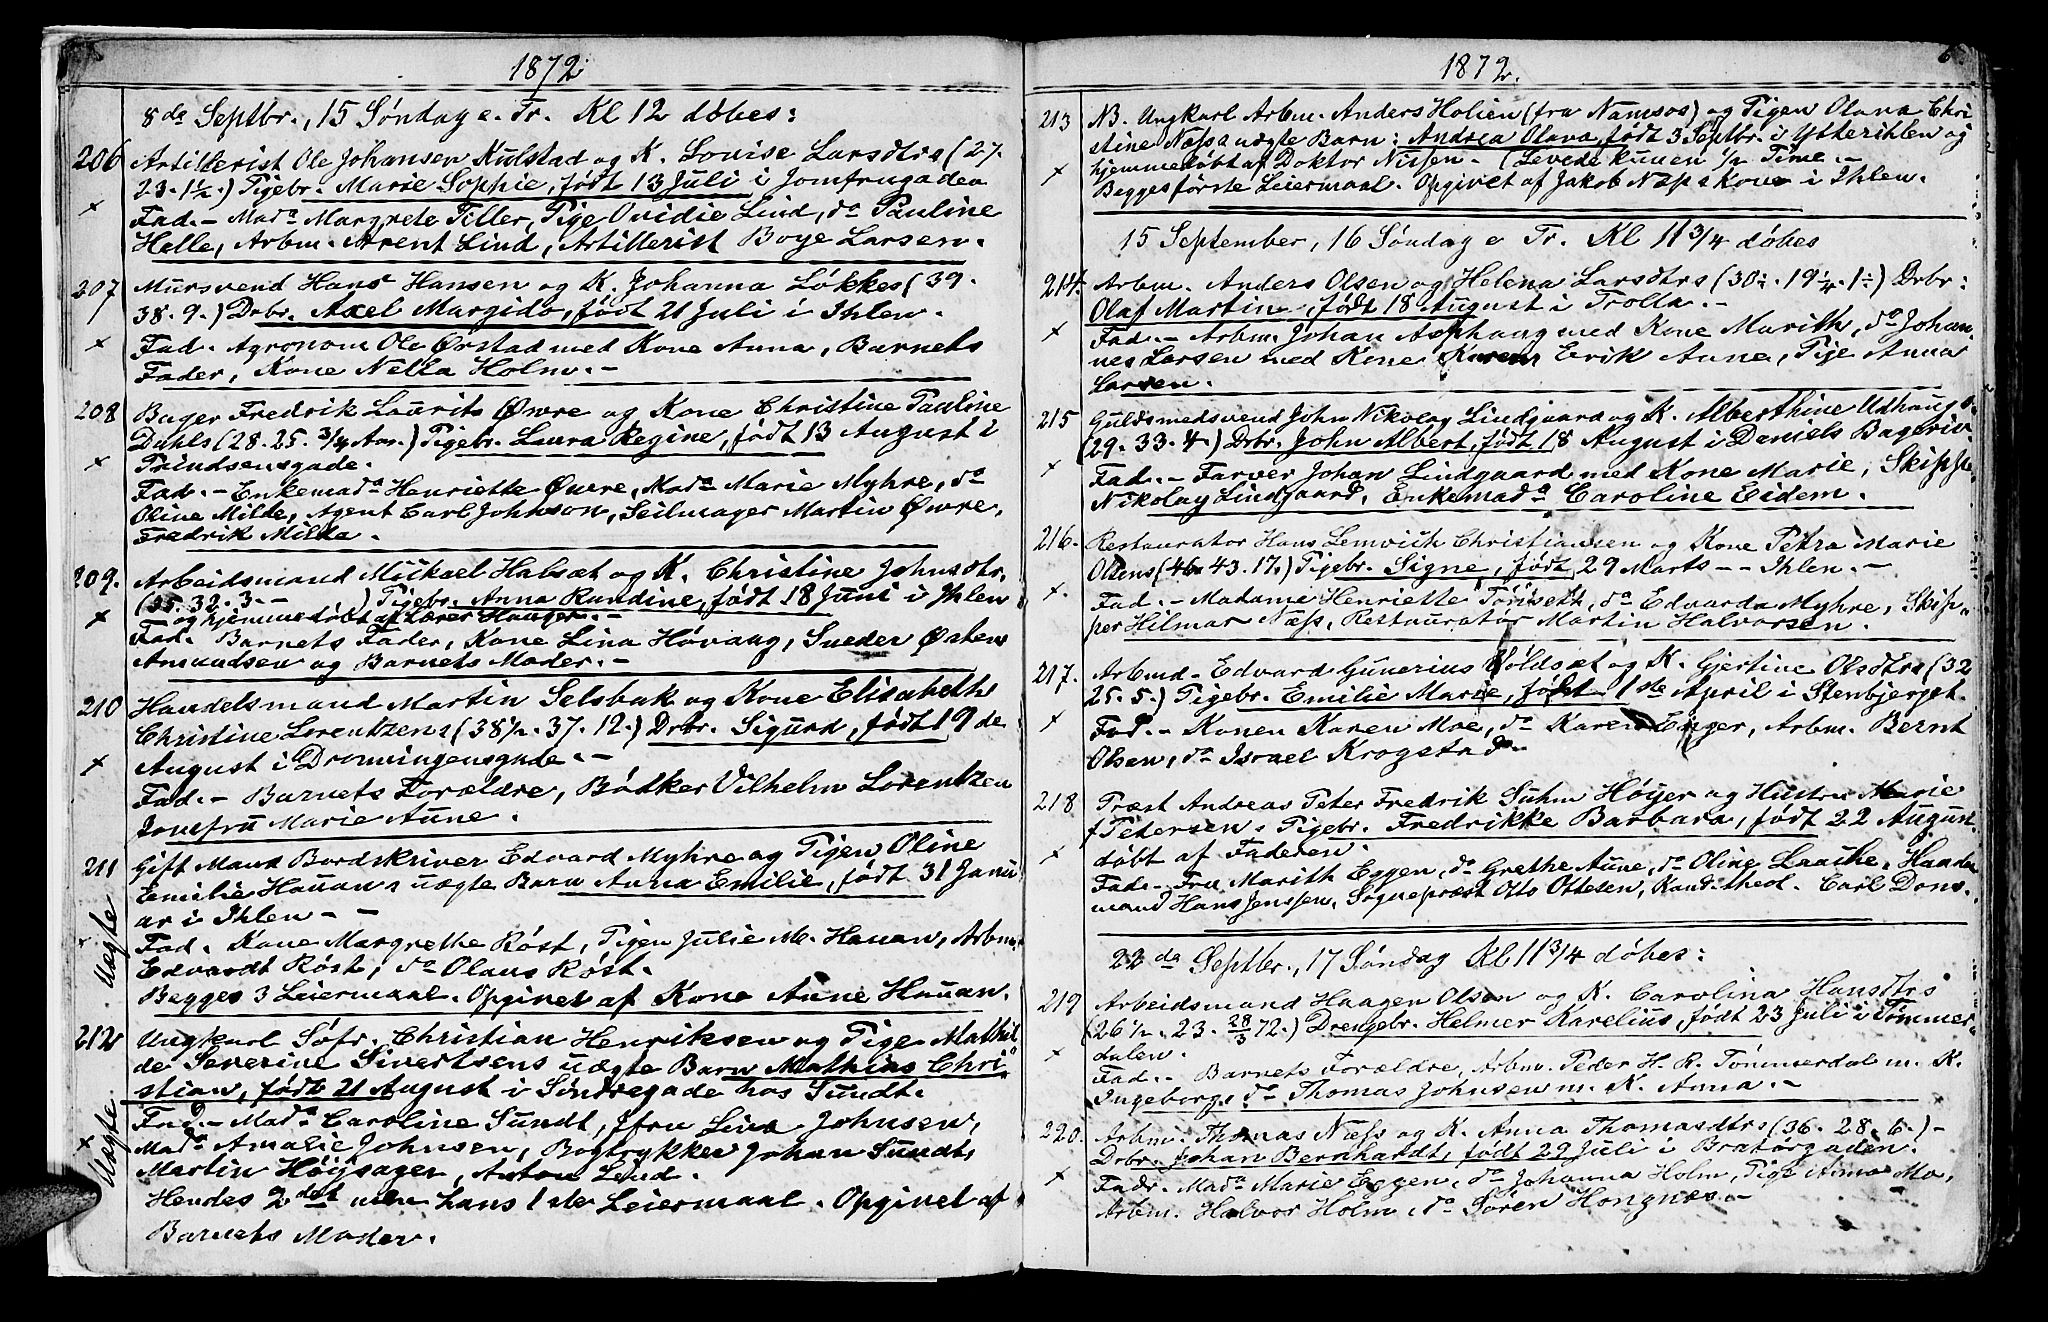 1872
8de Septbr., 15 Søndag e. Tr. Kl 12 døbes:
206 Artillerist Ole Johansen Kulstad og K. Lovise Larsdtrs (27.
23. 1½.) Pigebr. Marie Sophie, født 13 Juli i Jomfrugaden
× Fad. - Mada Margrete Tiller, Pige Ovidie Lind, do Pauline
Helle, Arbm. Arent Lind, Artillerist Boye Larsen.
207 Mursvend Hans Hansen og K. Johanna Løkkes (39.
38. 9.) Drbr. Axel Margido, født 21 Juli i Ihlen.
× Fad. Agronom Ole Ørstad med Kone Anna, Barnets
Fader, Kone Nella Holm. -
208 Bager Fredrik Laurits Øwre og Kone Christine Pauline
Dahls (28. 25. 3/4 Aar.) Pigebr. Laura Regine, født 13 August i
× Prindsensgade.
Fad. - Enkemada Henriette Øwre, Mada Marie Myhre, do
Oline Milde, Agent Carl Johnson, Seilmager Martin Øwre,
Fredrik Milde.
209. Arbeidsmand Mickael Halsæt og K. Christine Johnsdtr.
(35. 32. 3. - ) Pigebr. Anna Randine, født 18 Juni i Ihlen
× og hjemmedøbt af Lærer Hauger. -
Fad. Barnets Fader, Kone Lina Høvang, Sneder Østen
Amundsen og Barnets Moder. -
210 Handelsmand Martin Selsbak og Kone Elisabeth
Christine Lorentzens (38½. 37. 12.) Drbr. Sigurd, født 19 de
× August i Dronningensgade. -
Fad. - Barnets Forældre, Bødker Vilhelm Lorentzen
Jomfru Marie Aune.
211 Gift Mand Bordskriver Edvard Myhre og Pigen Oline
Emilie Hauans uægte Barn Anna Emilie, født 31 Janu
ar i Ihlen - -
× Uægte Fad. Kone Margrethe Røst, Pigen Julie M. Hauan, Arbm.
Edvardt Røst, do Olaus Røst.
Begges 3 Leiermaal. Opgivet af Kone Anne Hauan.
212 Ungkarl Søfr. Christian Henriksen og Pige Mathil
de Severine Sivertsens uægte Barn Mathias Chri
stian, født 21 August i Søndregade hos Sundt.
× Uægte Fad. - Mada Caroline Sundt, Jfru Lina Johnsen,
Mada Amalie Johnsen, Bogtrykker Johan Sundt,
Martin Høysager, Anton Lind.
Hendes 2det men hans 1ste Leiermaal. Opgivet af
Barnets Moder.
1872.
6
213 NB. Ungkarl Arbm. Anders Holien (fra Namsos) og Pigen Olava Chri
stine Næss uægte Barn: Andrea Olava, født 3 Septbr. i Ytterihlen og
× hjemmedøbt af Doktor Nissen. - (Levede kunen ½ Time. -
Begges første Leiermaal. Opgivet af Jakob Næss Kone i Ihlen.
15 September, 16 Søndag e Tr. Kl 11 3/4 døbes
214. Arbm. Anders Olsen og Helena Larsdtrs (30½. 19¼. 1½) Drbr:
Olaf Martin, født 18 August i Trolla. -
× Fad. - Arbm. Johan Asphaug med Kone Marith, do Johan
nes Larsen med Kone Karen Erik Aune, Pige Anna
Larsen.
215 Guldsmedsvend John Nikolay Lindgaard og K. Alberthine Udhaugs
(29. 33. 4) Drbr. John Albert, født 18 August i Daniels Bageriv.
× Fad. - Farver Johan Lindgaard med Kone Marie, Skippe
Nikolay Lindgaard, Enkemada Caroline Eidem.
216. Restauratør Hans Lemvich Christiansen og Kone Petra Marie
Olsens (46. 43. 17.) Pigebr. Signe, født 29 Marts - - Ihlen. -
×. Fad. - Madame Henriette Tørriseth, do Edvarda Myhre, Skip
per Hilmar Næss, Restauratør Martin Halvorsen.
217. Arbmd - Edvard Gunerius Voldsæt og K. Gjertine Olsdtrs (32
25. 5.) Pigebr. Emilie Marie, født 1ste April i Stenbjerget.
× Fad. - Konen Karen Moe, do Karen Enger, Arbm. Bernt
Olsen, do Israel Krogstad -
218 Præst Andreas Peter Fredrik Suhm Høyer og Hustru Marie
f Petersens Pigebr. Fredrikke Barbara, født 22 August
× døbt af Faderen.
Fad. - Fru Marith Eggen, do Grethe Aune, do Oline Laache, Handn
mand Hans Jenssen, Sognepræst Otto Ottesen, Kand. theol. Carl Dons.
22da Septbr., 17 Søndag Kl 11 3/4 døbes:
219 Arbeidsmand Haagen Olsen og K. Carolina Hansdtrs
(26½. 23. 28/3 72.) Drengebr. Helmer Karelius, født 23 Juli i Tømmer
× dalen.
Fad. - Barnets Forældre, Arbm. Peder H. R. Tømmerdal m. K.
Ingeborg, do Thomas Johnsen m. K. Anna. -
220. Arbm. Thomas Næss og K. Anna Thomasdtrs (36. 28. 6.) -
Drbr. Johan Bernhardt, født 29 Juli i Bratørgaden.
× Fadr. Mada Marie Eggen, do Johanna Holm, Pige Anna Mo,
Arbm. Halvor Holm, do Søren Hongnæs. -